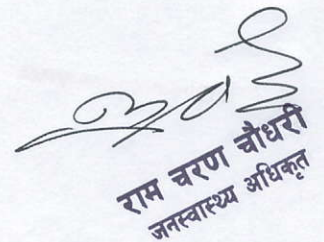 राम चरण चौधरी
जनस्वास्थ्य अधिकृत